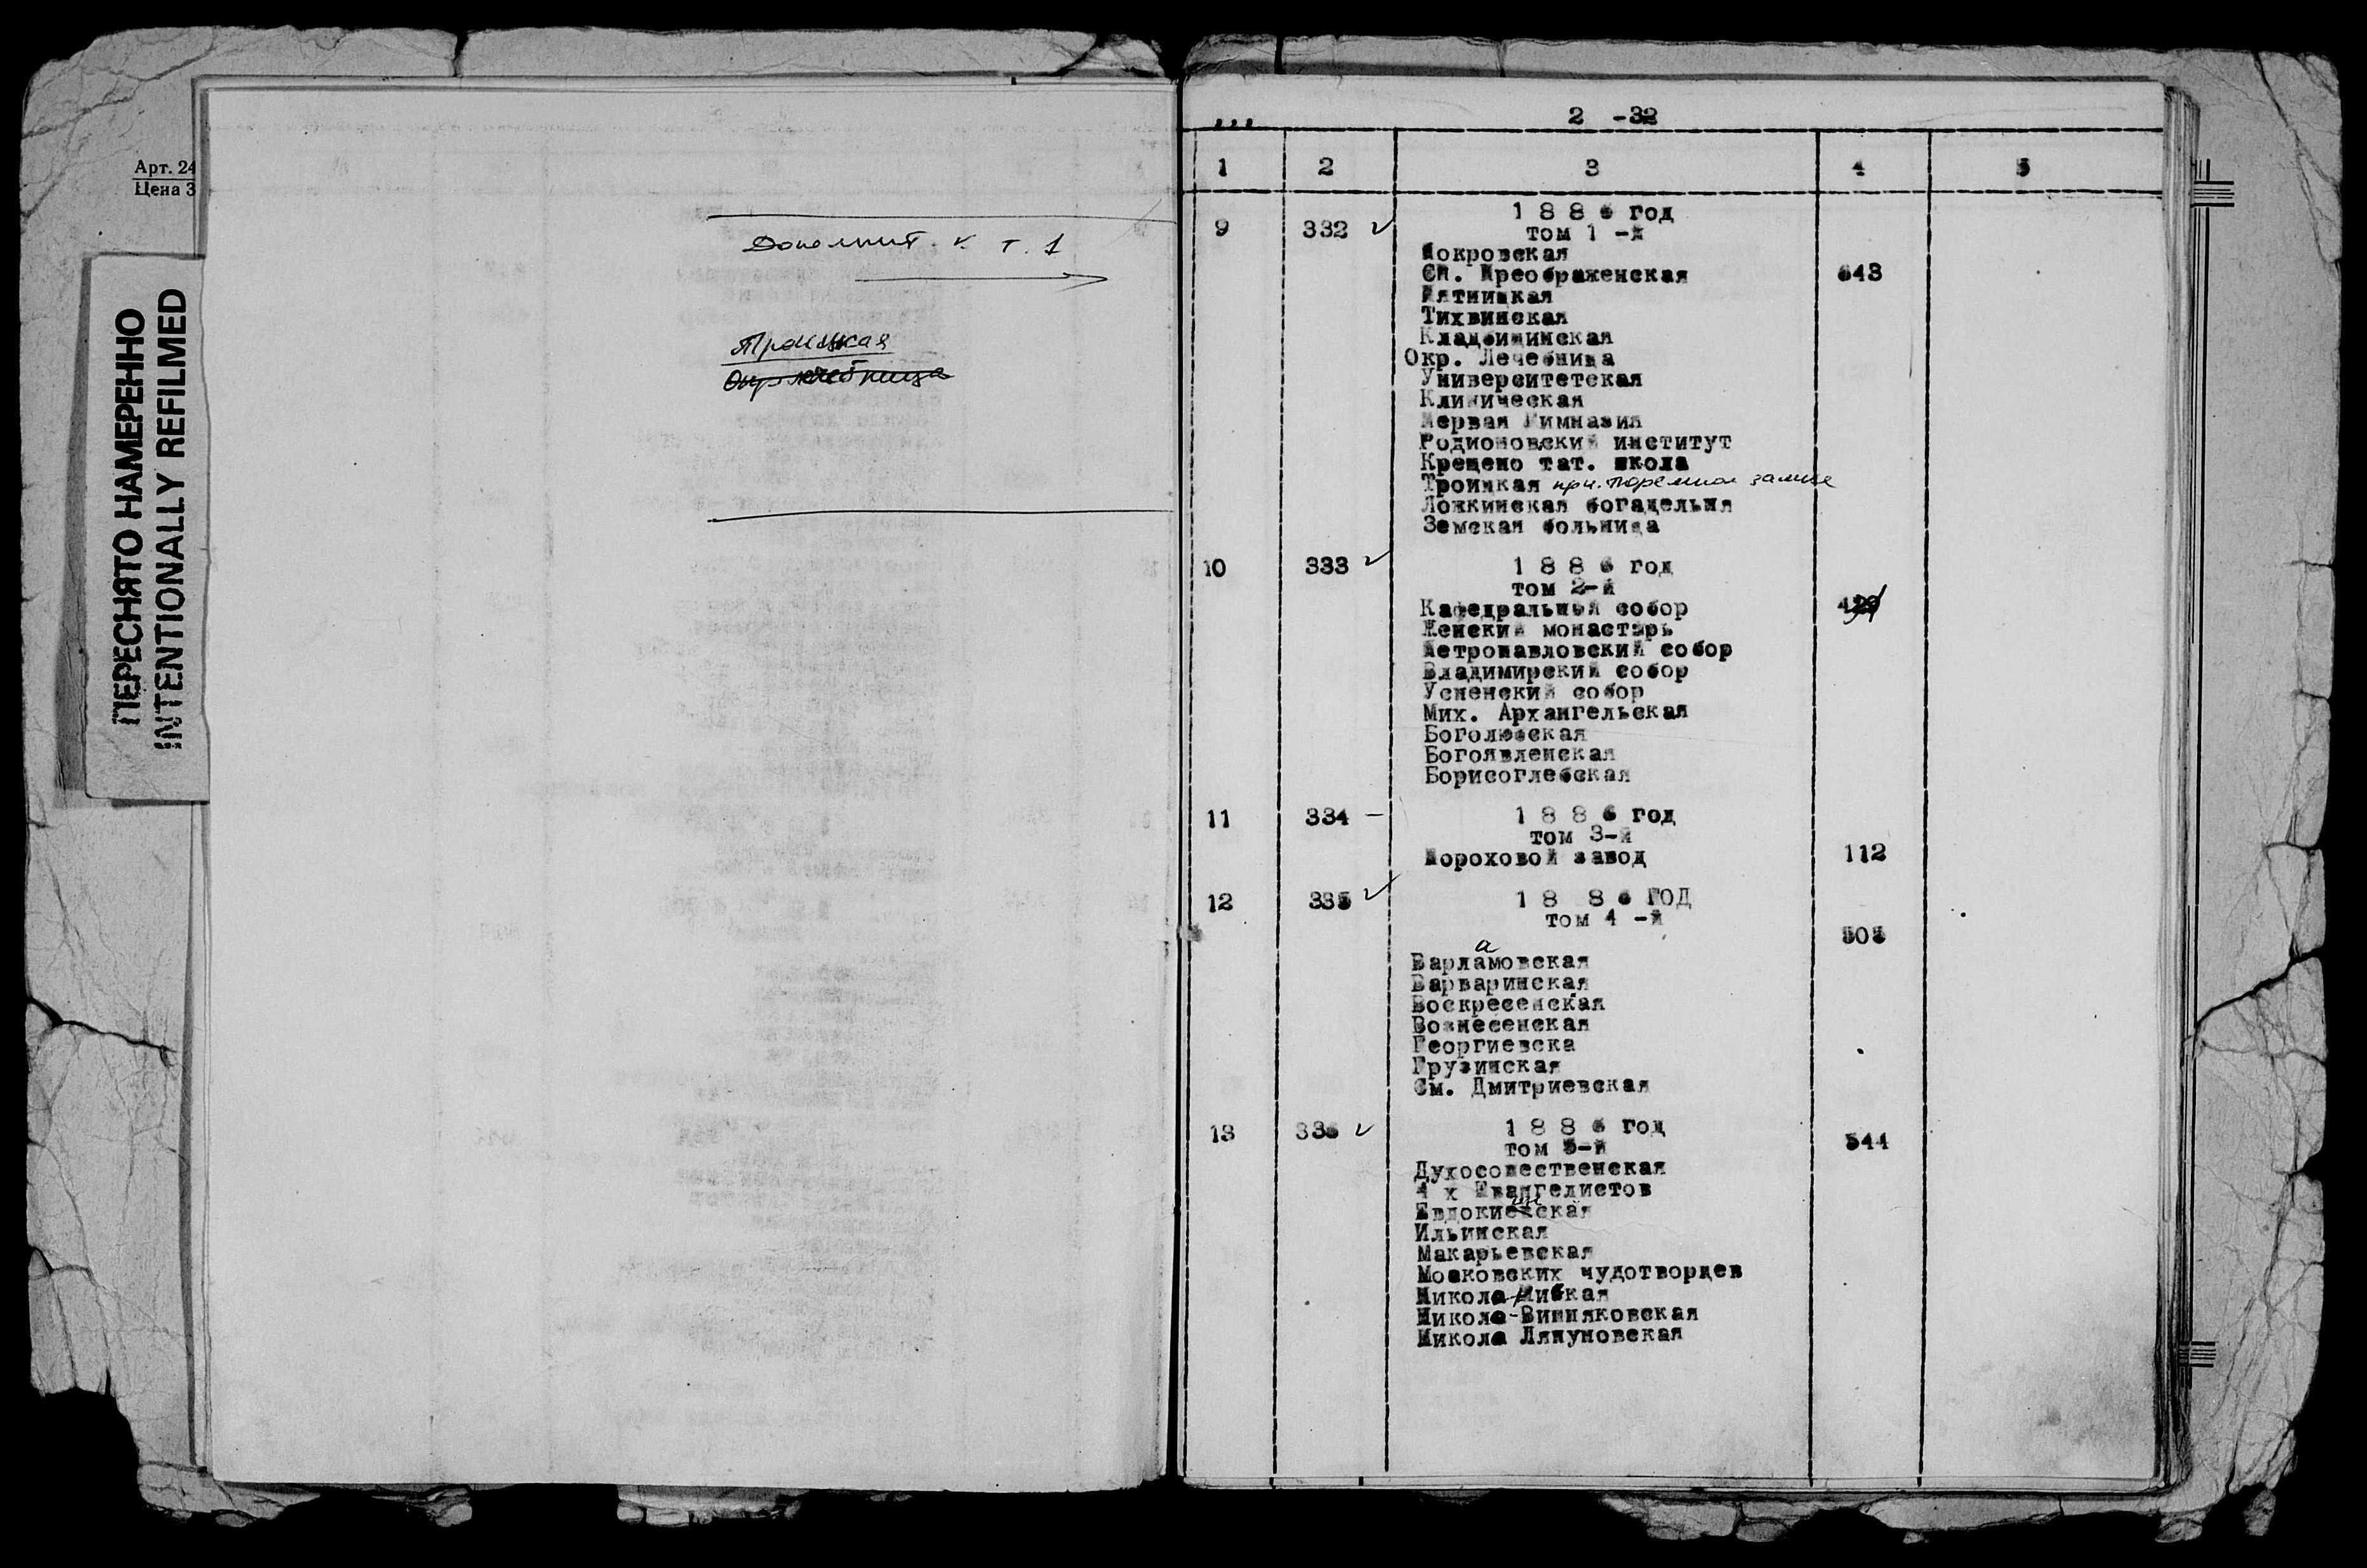 Арт. 24
Цена 3
ПЕРЕСНЯТО НАМЕРЕННО
INTENTIONALLY REFILMED
Дополнит. к т. 1
Троицкая
Окр лечебница
2 -32
1 2 3 4 5
9 332 1 8 8 6 год
том 1 -й
Покровская
Сп. Преображенская 643
Пятницкая
Тихвинская
Кладбищинская
Окр. Лечебница
Университетская
Клиническая
Первая Гимназия
Родионовский институт
Крещено тат. школа
Троицкая при тюремном замке
Ложкинская богадельня
Земская больница
10 333 1 8 8 6 год
том 2-й
Кафедральный собор
Женский монастырь
Петропавловский собор
Владимирский собор
Успенский собор
Мих. Архангельская
Боголюбская
Богоявленская
Борисоглебская
11 334 – 1 8 8 6 год
том 3-й
Пороховой завод 112
12 335 1 8 8 6 ГОД
том 4 -й
505
а
Варламовская
Варваринская
Воскресенская
Вознесенская
Георгиевска
Грузинская
См. Дмитриевская
13 336 1 8 8 6 год
том 5-й 544
Духосошественская
4 х Евангелистов
Ильинская
Макарьевская
Московских чудотворцев
Николо-Вишняковская
Никола Ляпуновская